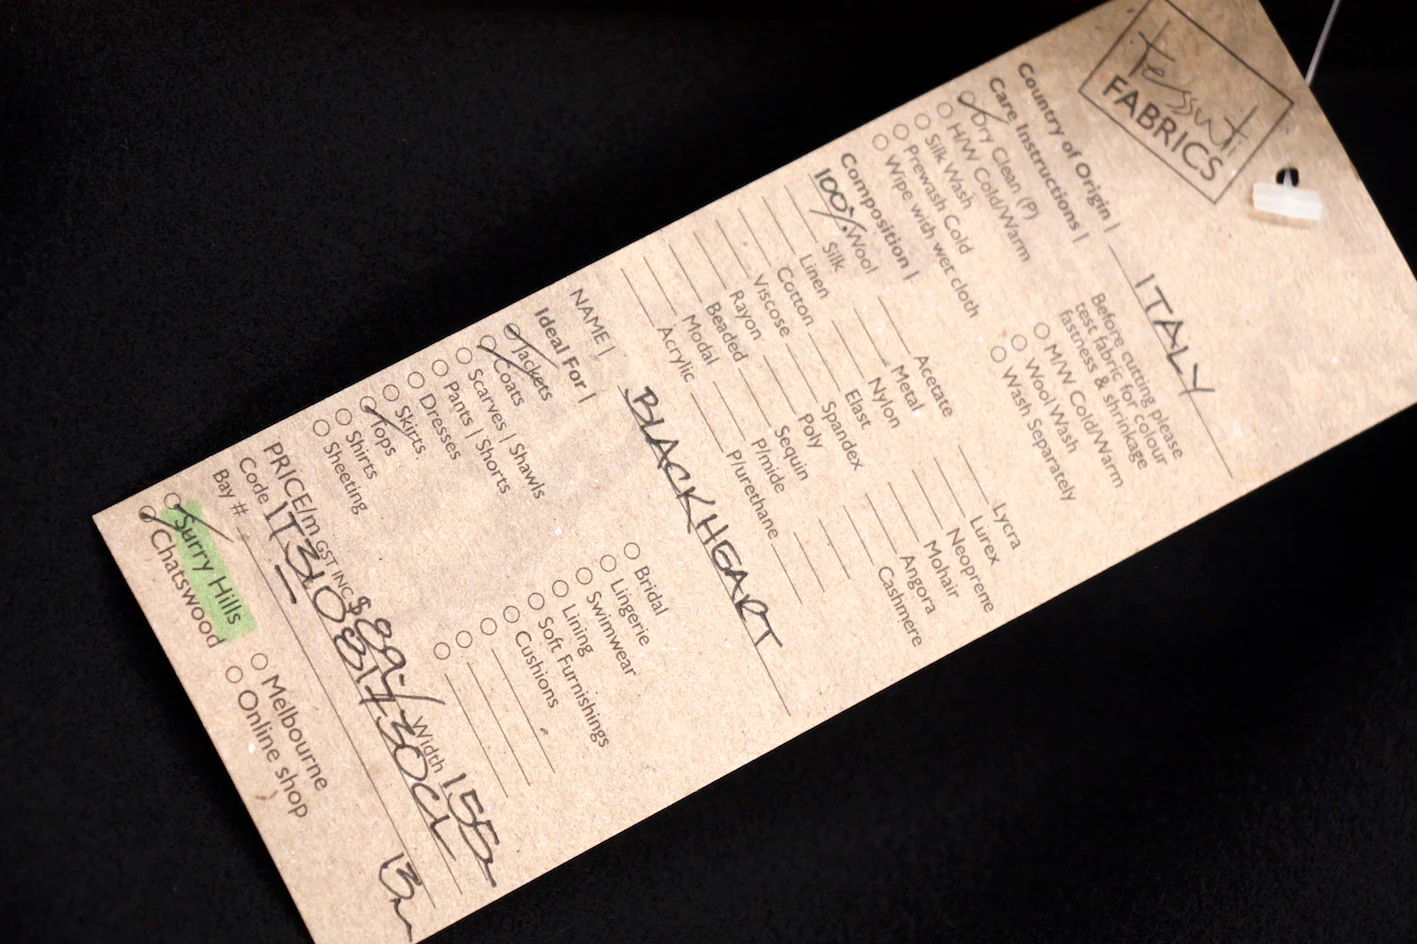 tessuti
FABRICS
Country of Origin | ITALY
Care Instructions |
Dry Clean (P)
H/W Cold/Warm
Silk Wash
Prewash Cold
Wipe with wet cloth
Before cutting please
test fabric for colour
fastness & shrinkage
M/W Cold/Warm
Wool Wash
Wash Separately
Composition |
100% Wool
Silk
Linen
Cotton
Viscose
Rayon
Beaded
Modal
Acrylic
Acetate
Metal
Nylon
Elast
Spandex
Poly
Sequin
P/mide
P/urethane
Lycra
Lurex
Neoprene
Mohair
Angora
Cashmere
NAME | BLACKHEART
Ideal For |
Jackets
Coats
Scarves | Shawls
Pants | Shorts
Dresses
Skirts
Tops
Shirts
Sheeting
Bridal
Lingerie
Swimwear
Lining
Soft Furnishings
Cushions
PRICE/m GST INC $89.- Width 155
Code
Bay #
13m
Surry Hills
Chatswood
Melbourne
Online shop